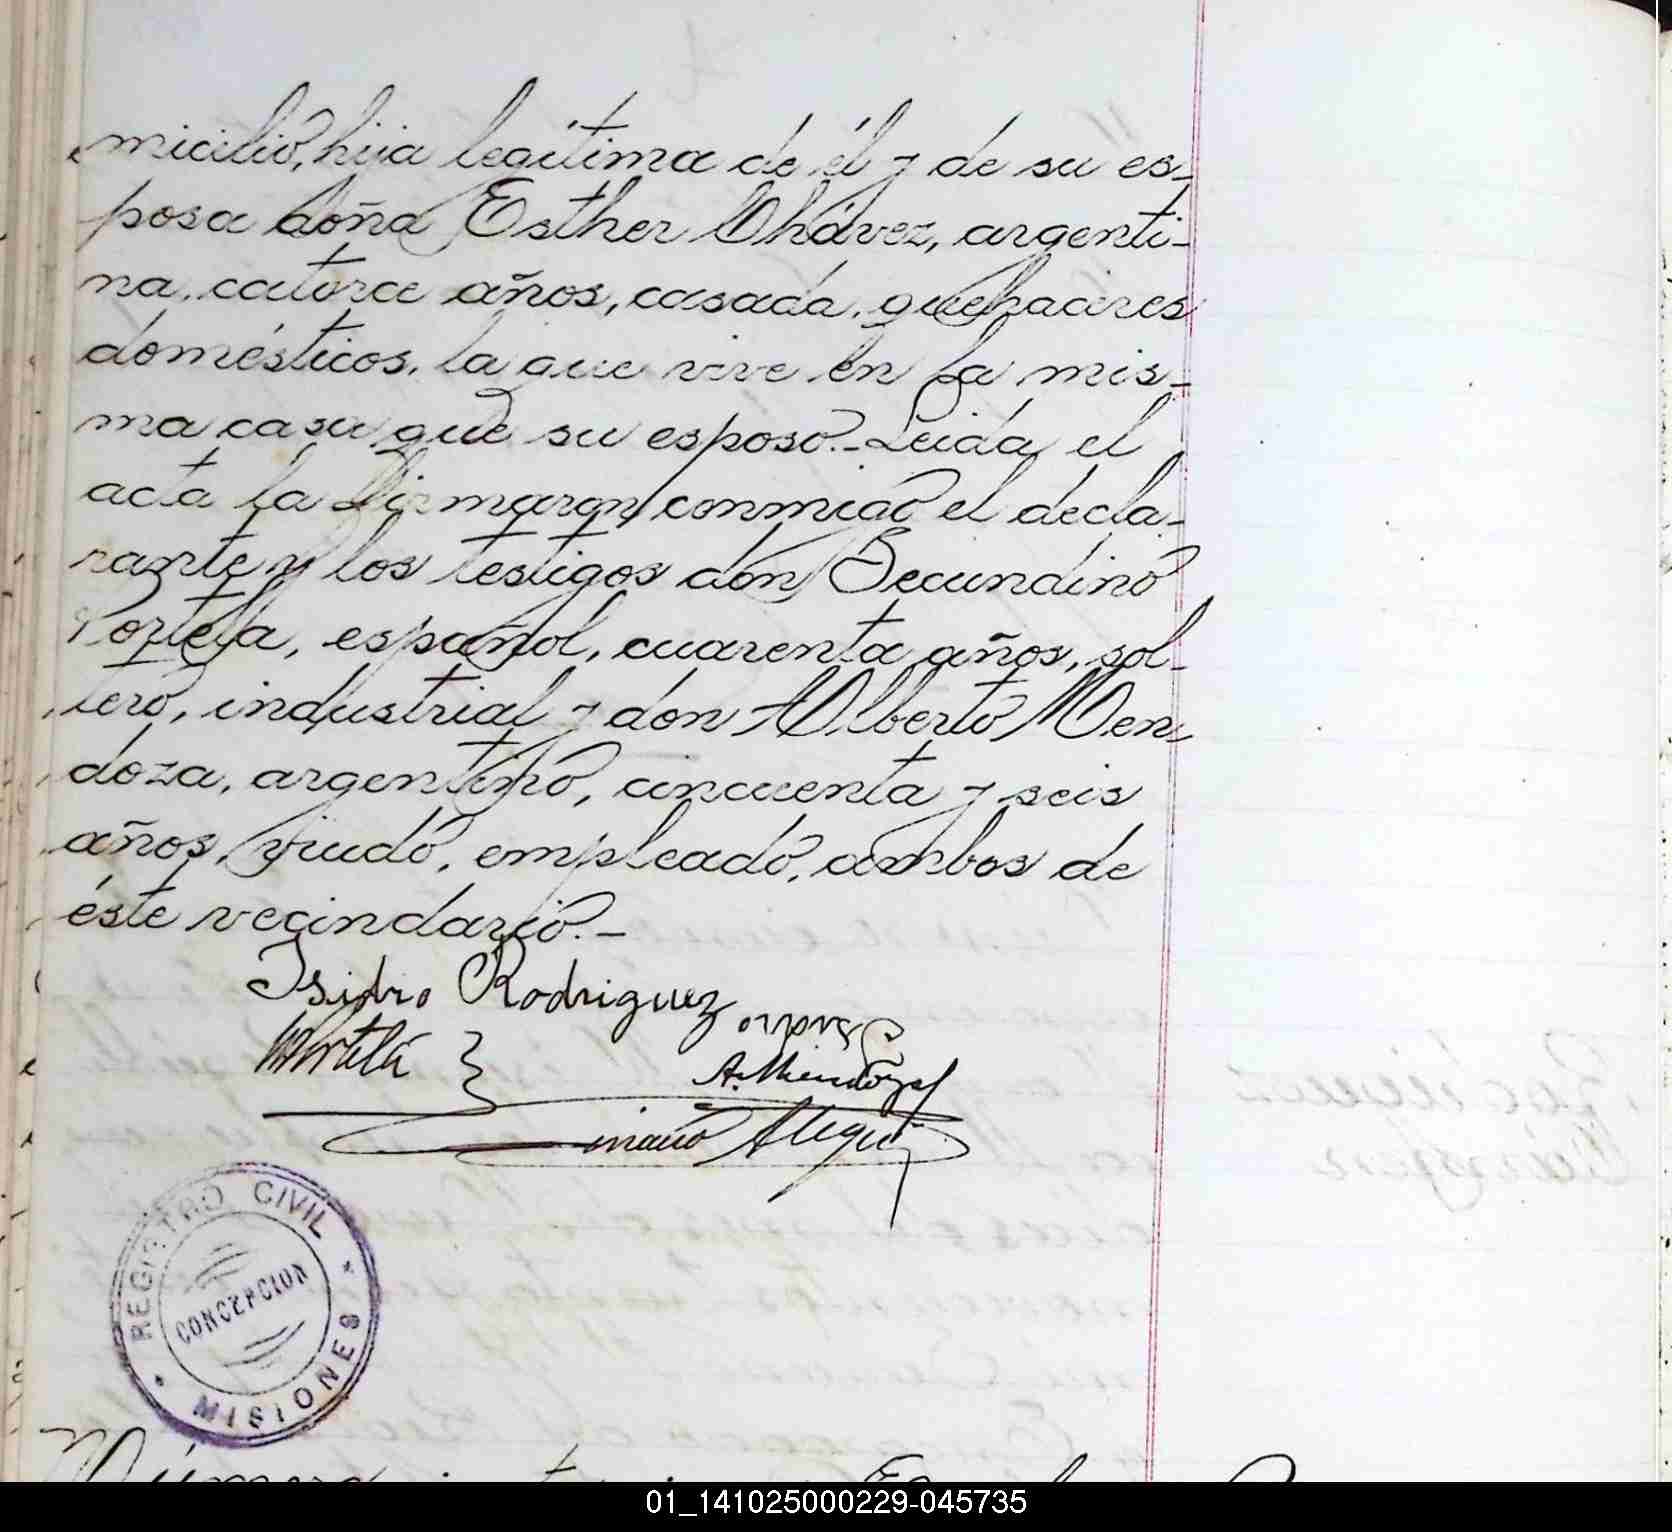 micilio, hija legítima de él y de su es-
posa doña Esther Chávez, argenti-
na, catorce años, casada, quehaceres
domésticos, la que vive en la mis-
ma casa que su esposo.- Leida el
acta la firmaron conmigo el decla-
rante y los testigos don Secundino
Portela, español, cuarenta años, sol-
tero, industrial y don Alberto Men-
doza, argentino, cincuenta y seis
años, viudo, empleado, ambos de
éste vecindario.-
Isidro Rodriguez
A. Mendoza
REGISTRO CIVIL
CONCEPCION
MISIONES
01_141025000229-045735